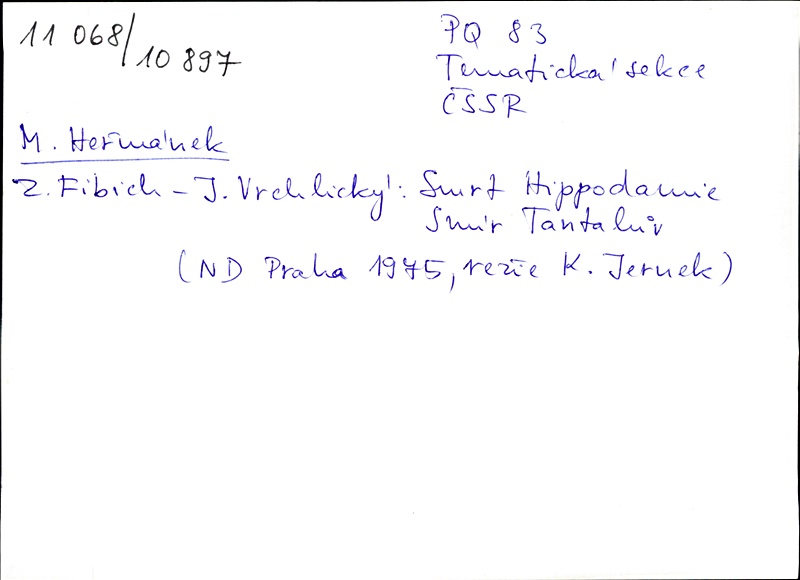 11 068/10 897
PQ 83
Tematická sekce
ČSSR
M. Heřmánek
Z. Fibich - J. Vrchlický: Smrt Hippodamie
Smír Tantalův
(ND Praha 1975, režie K. Jernek)